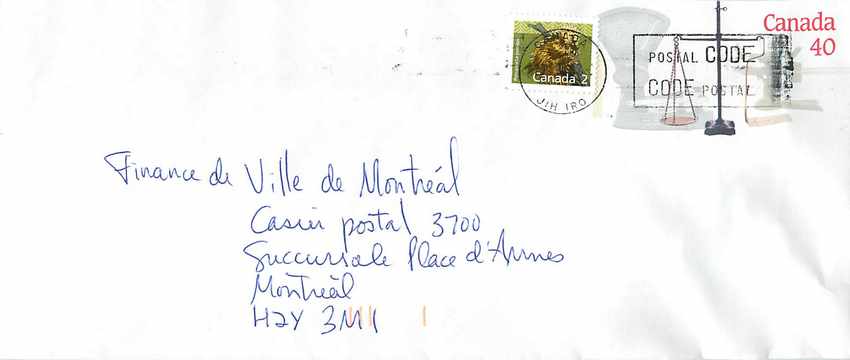 Canada
40
Canada 2
POSTAL CODE
CODE POSTAL
J1H 1R0
Finance de Ville de Montréal
Casier postal 3700
Succursale Place d'Armes
Montréal
H2Y 3M1